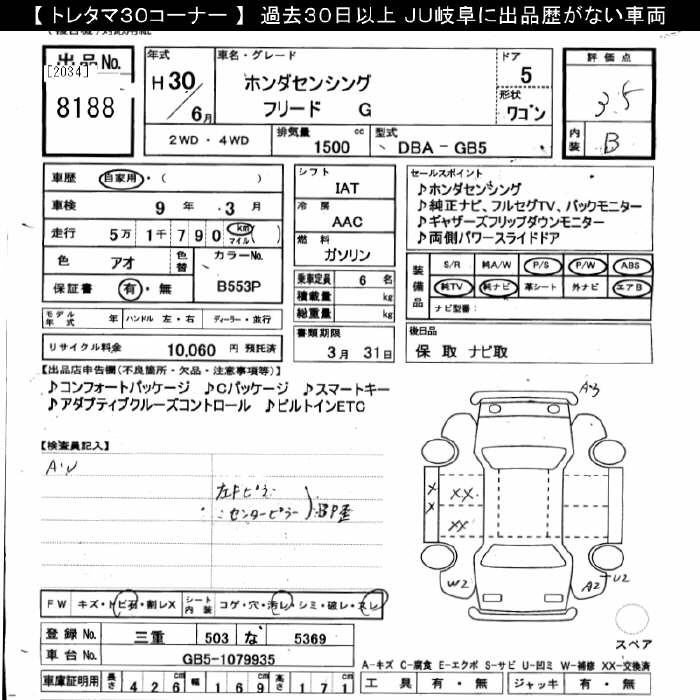 【 トレタマ30コーナー 】 過去30日以上 JU岐阜に出品歴がない車両
出品No.
[2034]
8188
年式
H30／6月
車名・グレード
ホンダセンシング
フリード G
ドア
5
形状
ワゴン
評価点
3.5
内装
B
2WD ・ 4WD
排気量
1500 cc
型式
DBA − GB5
車歴 自家用・( )
車検 9 年 3 月
走行 5万 1千 790 km マイル( )
色 アオ 色替
カラーNo.
B553P
保証書 有・無
モデル年式 年 ハンドル 左・右 ディーラー・並行
リサイクル料金 10,060 円 預託済
シフト
IAT
冷房
AAC
燃料
ガソリン
乗車定員 6 名
積載量 kg
総重量 kg
書類期限
3月 31日
セールスポイント
♪ホンダセンシング
♪純正ナビ、フルセグTV、バックモニター
♪ギャザーズフリップダウンモニター
♪両側パワースライドドア
装備品
S/R 純A/W P/S P/W ABS
純TV 純ナビ 革シート 外ナビ エアB
ナビ型番:
後日品
保 取 ナビ取
【出品店申告欄(不良箇所・欠品・注意事項等)】
♪コンフォートパッケージ ♪Cパッケージ ♪スマートキー
♪アダプティブクルーズコントロール ♪ビルトインETC
【検査員記入】
A・U
左Fピラー
センターピラー
A3
XX
XX
X
X
W2
A2
U2
FW キズ・トビ石・割レX シート内装 コゲ・穴・汚レ・シミ・破レ・スレ
登録No. 三重 503 な 5369
車台No. GB5-1079935
車庫証明用 長さ 426 cm 幅 169 cm 高さ 171 cm
スペア
A-キズ C-腐食 E-エクボ S-サビ U-凹ミ W-補修 XX-交換済
工具 有・無 ジャッキ 有・無